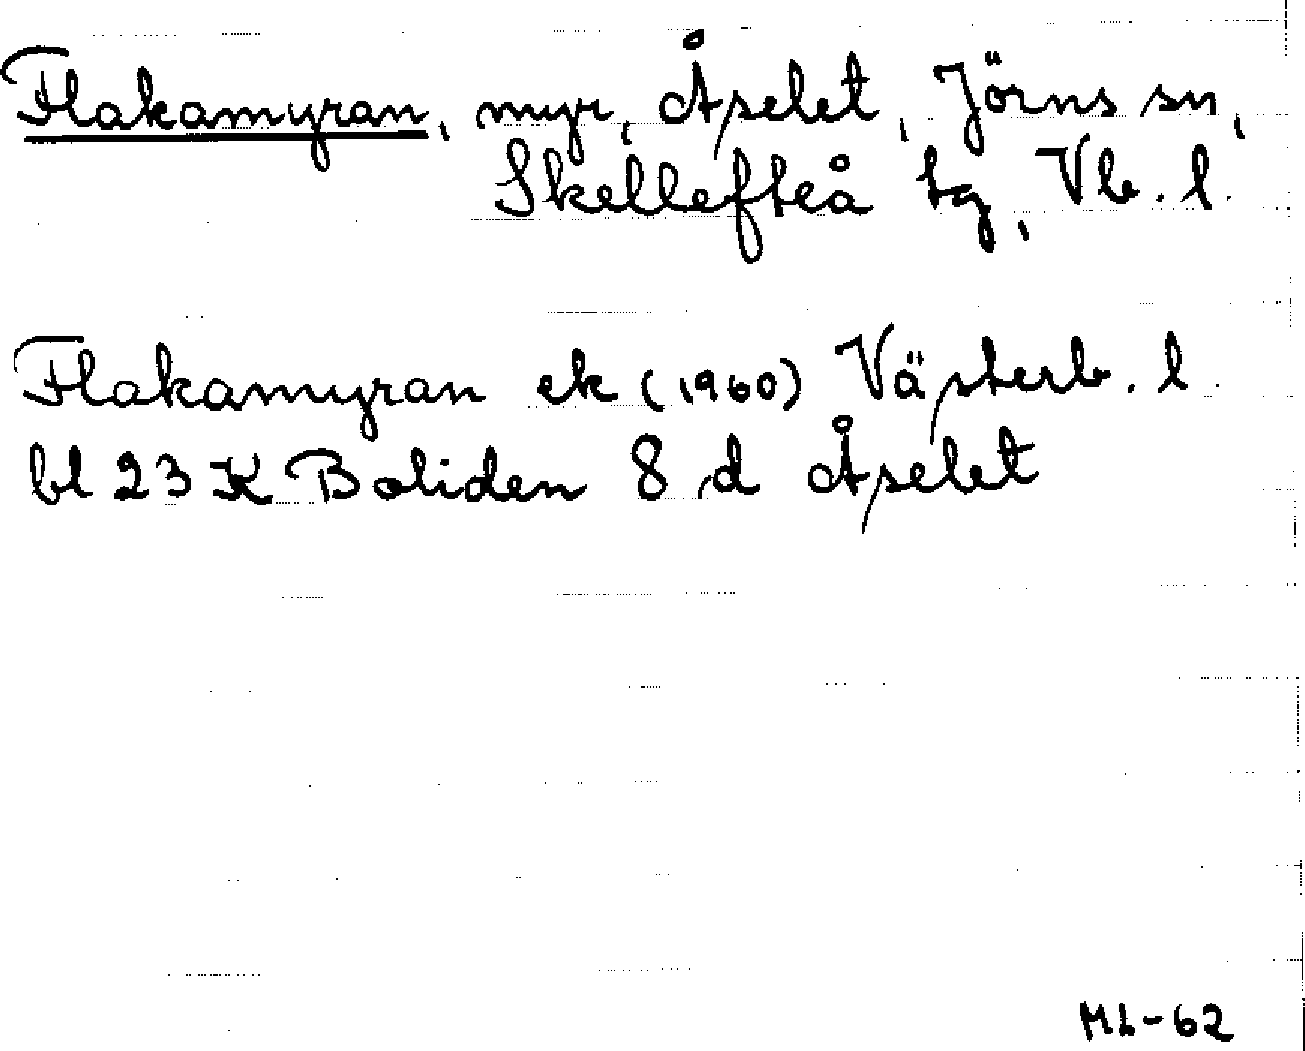 Flakamyran, myr, Åselet, Jörns sn,
Skellefteå tg, Vb. l.
Flakamyran ek (1960) Västerb. l.
bl 23 K Boliden 8 d Åselet
ML-62